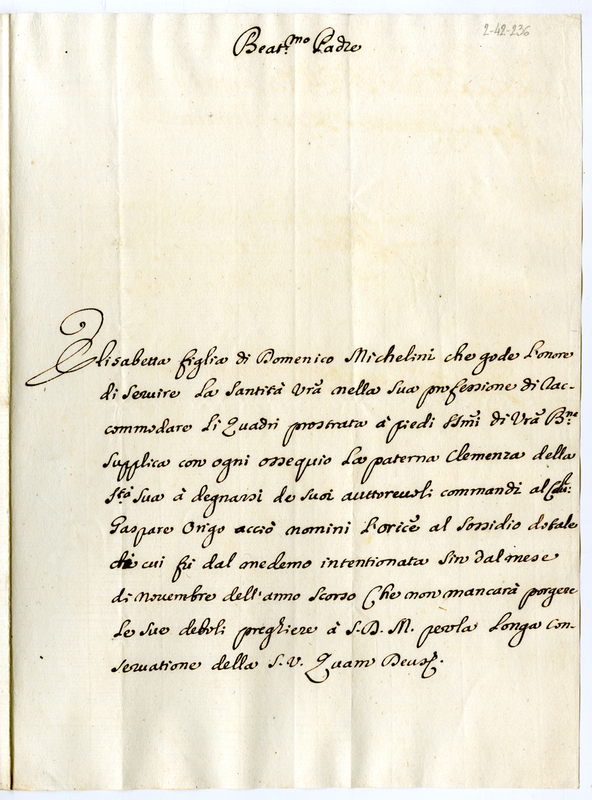 2-42-236
Beat.mo Padre
Elisabetta figlia di Domenico Michelini che gode l'onore
di servire La Santità Vrā nella sua professione di rac-
commodare li Quadri prostrata à piedi SSm̄i di Vrā Bne
supplica con ogni ossequio La paterna Clemenza della
Stà Sua à degnarsi de suoi auttorevoli commandi al
Gaspare Origo acciò nomini l'oricē al sossidio dotale
di cui fù dal medemo intentionata sin dal mese
di Novembre dell'anno scorso Che non mancarà porgere
Le sue deboli preghiere à S.D.M. per la Longa con-
servatione della S.V. Quam Deus